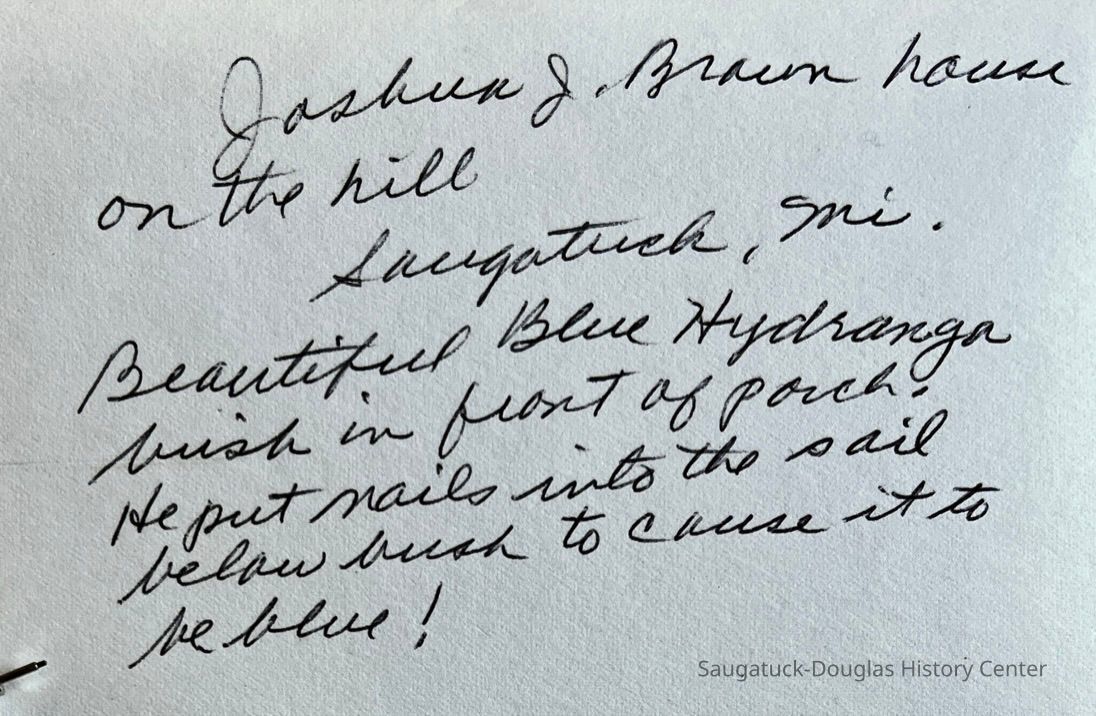 Joshua J. Brown house
on the hill
Saugatuck, Mi.
Beautiful Blue Hydranga
bush in front of porch.
He put nails into the soil
below bush to cause it to
be blue!
Saugatuck-Douglas History Center